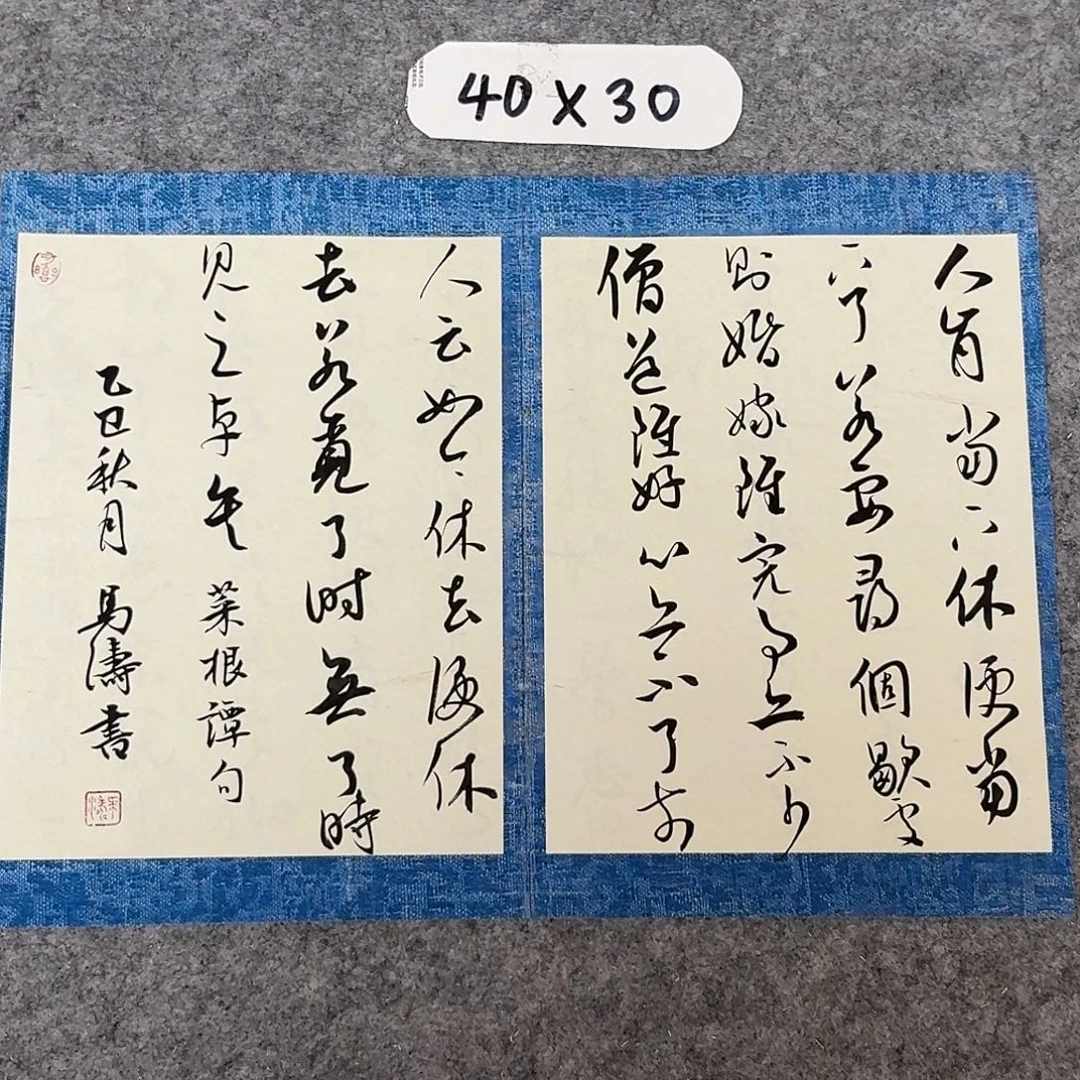 40 X 30
人肯當下休便當
下了若要尋個歇處
則婚嫁雖完事亦不少
僧道雖好心亦不了前
人云如今休去便休
去若覓了时無了時
見之卓矣 菜根譚句
乙巳秋月 馬濤書